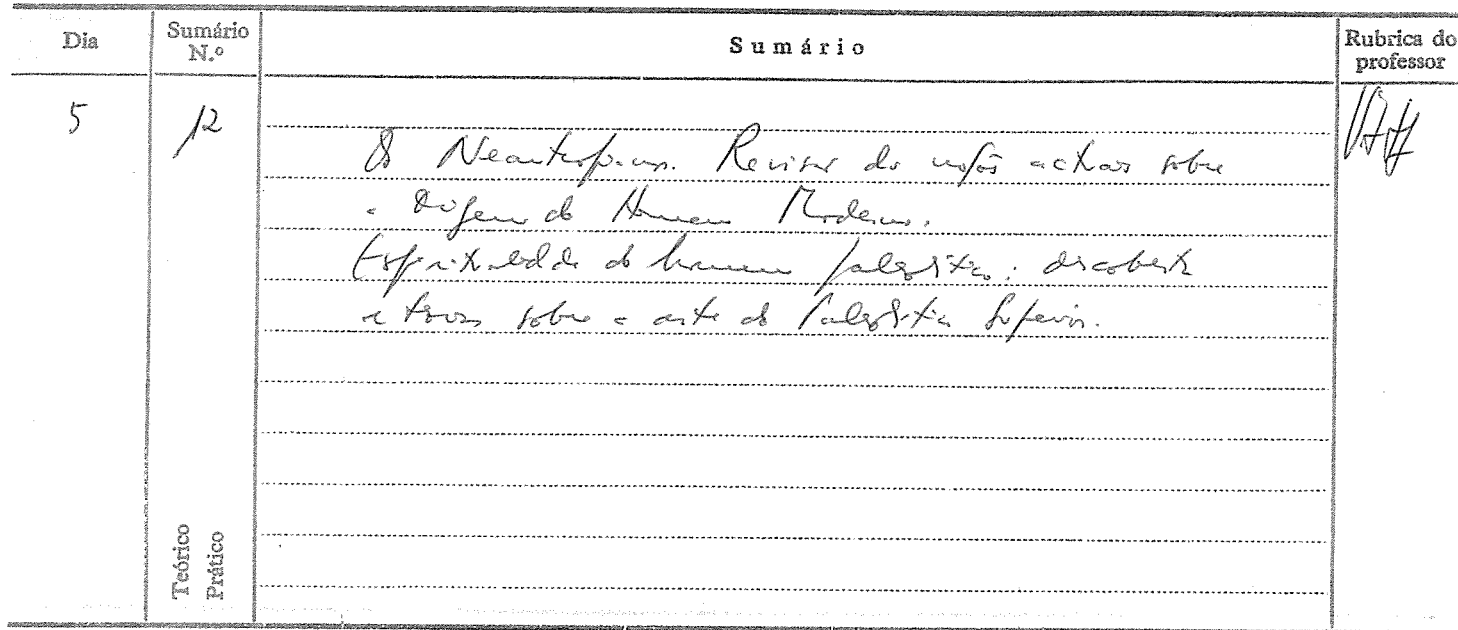 Dia
Sumário N.º
Sumário
Rubrica do professor
5
12
Os Neantropianos. Revisão das noções actuais sobre
a origem do Homem Moderno.
Espiritualidade do homem paleolítico: descoberta
e teorias sobre a arte do Paleolítico Superior.
Teórico
Prático